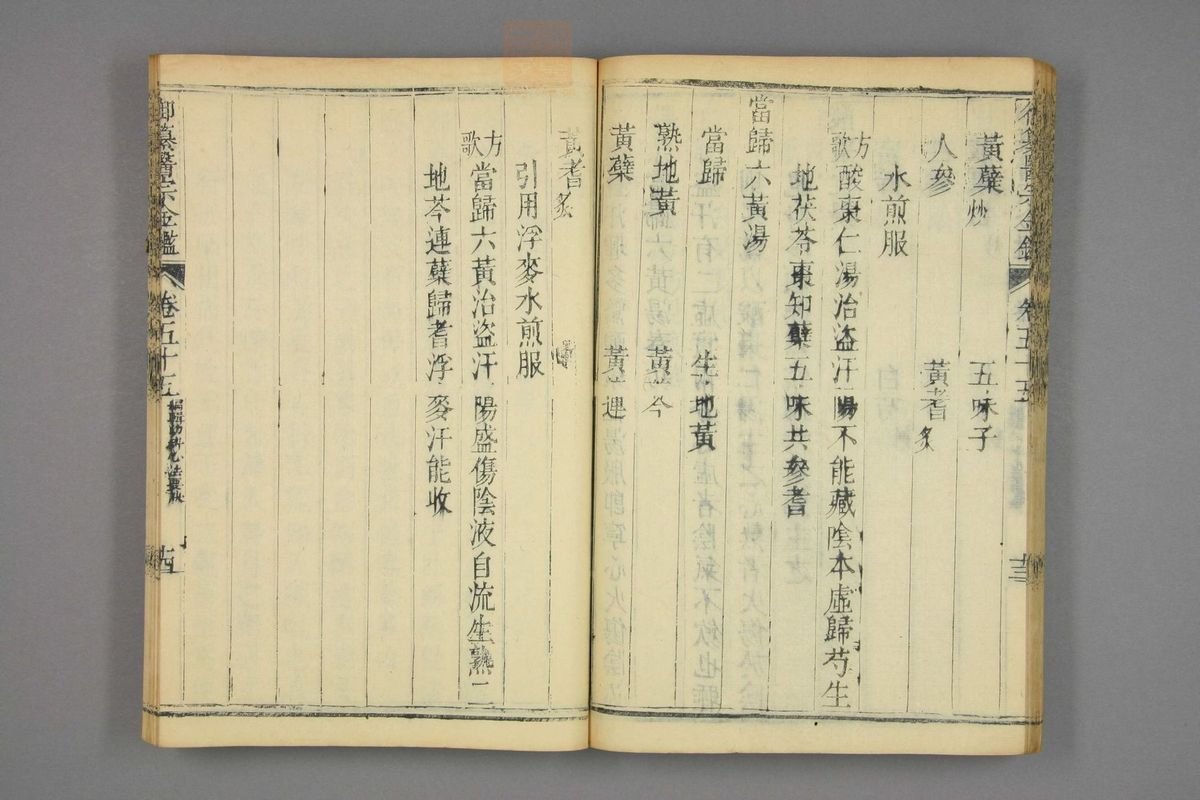 黃蘗炒 五味子
人參 黃耆炙
水煎服
方歌 酸棗仁湯治盜汗陽不能藏陰本虛歸芍生
地茯苓棗知蘗五味共參耆
當歸六黃湯
當歸 生地黃
熟地黃 黃芩
黃蘗 黃連
黃耆炙
引用浮麥水煎服
方歌 當歸六黃治盜汗陽盛傷陰液自流生熟二
地芩連蘗歸耆浮麥汗能收
御纂醫宗金鑑 卷五十五 編輯幼科心法要訣